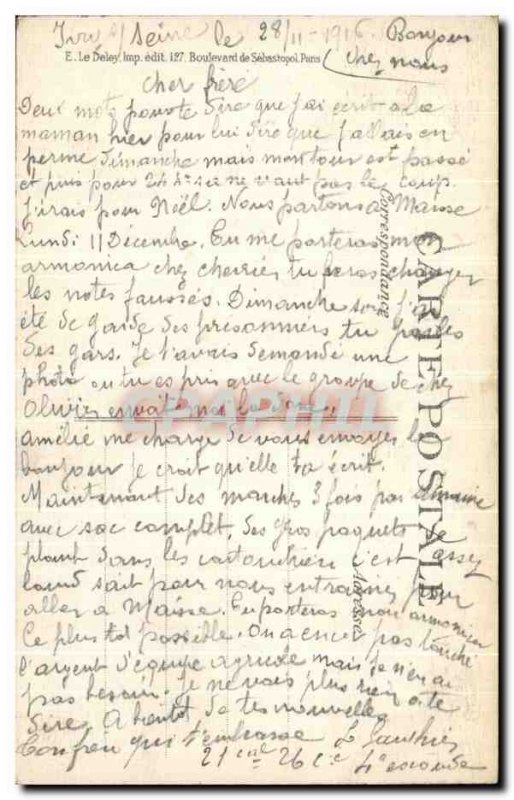 Ivry s/ Seine le 28/11 - 1916 Bonjour
chez nous
E. Le Deley, Imp. édit. 127, Boulevard de Sébastopol, Paris
Cher frère
Deux mots pour te dire que j'ai écrit à la
maman hier pour lui dire que j'allais en
perme dimanche mais mon tour est passé
et puis pour 24 h ça ne vaut pas le coup.
J'irais pour Noël. Nous partons à Maisse
Lundi 11 Décembre. Tu me porteras mon
armonica chez tu feras changer
les notes faussés. Dimanche soir j'ai
été de garde des prisonniers tu parles
des gars. Je t'avais demandé une
photo ou tu es pris avec le groupe de chez
Olivier envoit moi la donc.
amélie me charge de vous envoyer le
bonjour je croit qu'elle ta écrit.
Maintenant des marches 3 fois par semaine
avec sac complet, des gros paquets de
plomb dans les cartouchières c'est assez
lourd sait pour nous entrainer pour
aller a Maisse. Tu porteras mon armonica
le plus tot possible. On a encore pas touché
l'argent d'équipe agricole mais je n'en ai
pas besoin. Je ne vais plus rien a te
dire. A bientot de tes nouvelles
Ton frère qui t'embrasse L Gauthier
21 26 Cie 4e escouade
CARTE POSTALE
Correspondance
Adresse
CPAPHIL